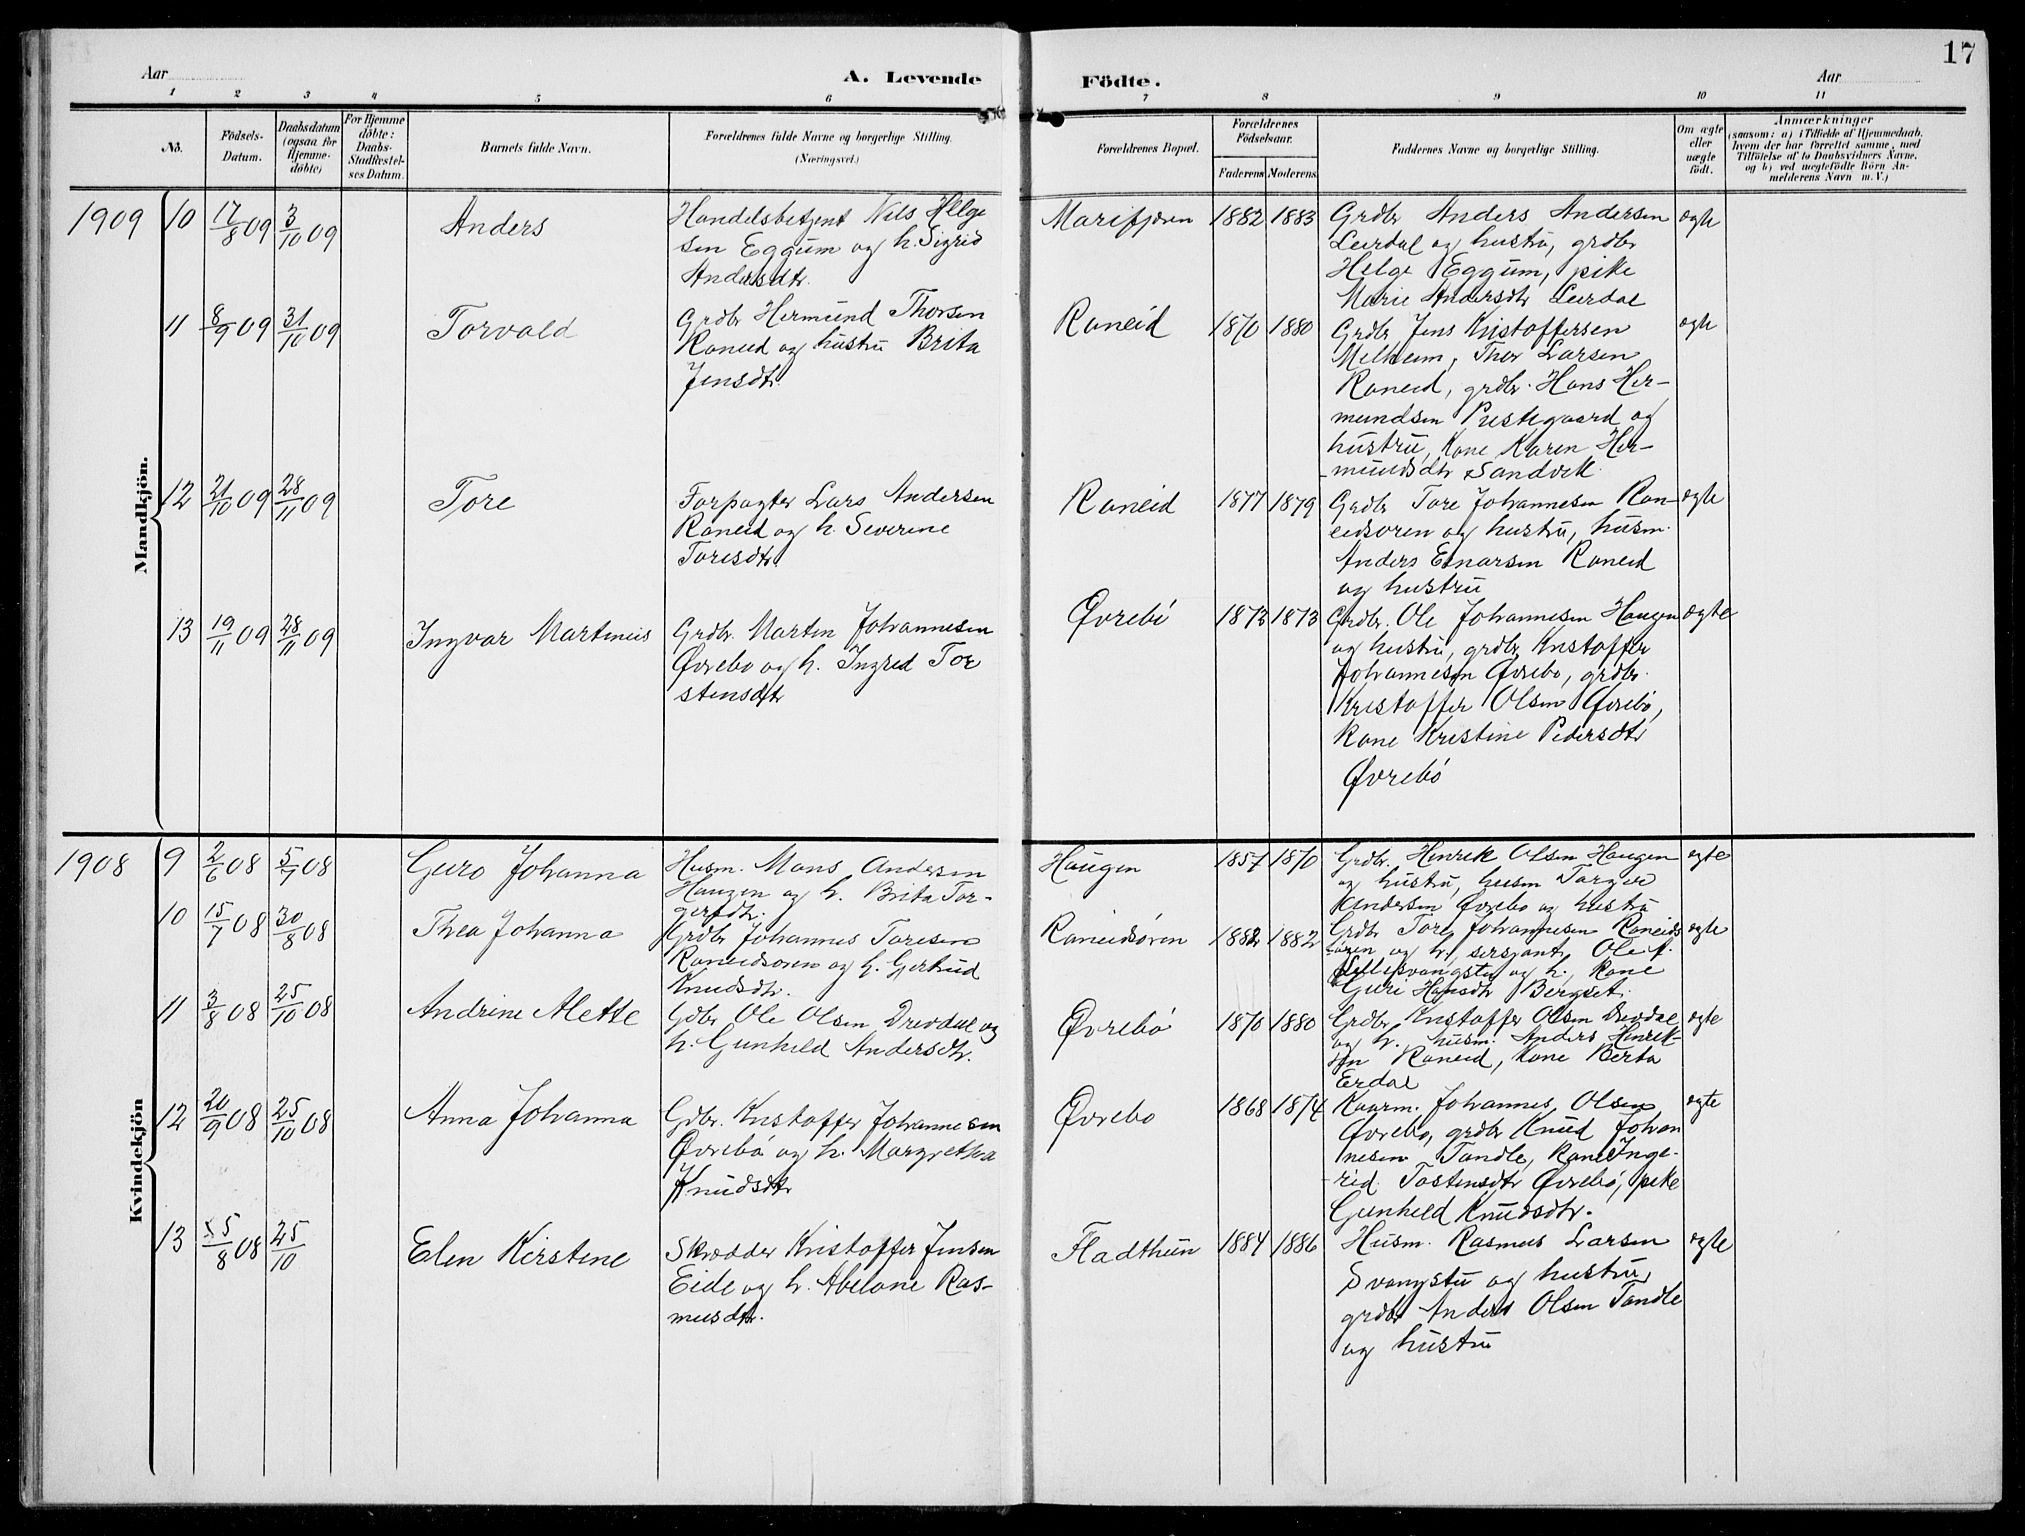 17
Aar
A. Levende
Födte.
Aar
1 2 3 4 5 6 7 8 9 10 11
No.
Födsels-
Datum.
Daabsdatum
(ogsaa for
Hjemme-
döbte)
For Hjemme
döbte:
Daabs-
Stadfæstel-
ses Datum.
Barnets fulde Navn.
Forældrenes fulde Navne og borgerlige Stilling.
(Næringsvei.)
Forældrenes Bopæl.
Forældrenes
Födselsaar.
Faderens
Moderens
Faddernes Navne og borgerlige Stilling.
Om ægte
eller
uægte
födt.
Anmærkninger
(saasom: a) i Tilfælde af Hjemmedaab,
hvem der har forrettet samme, med
Tilföielse af to Daabsvidners Navne,
og b) ved uægtefödte Börn An-
melderens Navn m. V.)
Mandkjön.
1909 10 17/8 09 3/10 09
Anders
Handelsbetjent Nils Helge
sen Eggum og h. Sigrid
Andersdtr.
Marifjæren 1882 1883
Grdbr Anders Andersen
Leirdal og hustru, grdbr
Helge Eggum, pike
Marie Andersdtr Leirdal
ægte
11 8/9 09 31/10 09
Torvald
Grdbr Hermund Thorsen
Raneid og hustru Brita
Jensdtr.
Raneid 1870 1880
Grdbr Jens Kristoffersen
Melheim, Thor Larsen
Raneid, grdbr. Hans Her-
mundsen Prestegaard og
hustru, Kone Karen Her-
mundsdtr Sandvik.
ægte
12 21/10 09 28/11 09
Tore
Forpagter Lars Andersen
Raneid og h. Severine
Toresdtr.
Raneid 1877 1879
Grdbr Tore Johannesen Ran-
eidsøren og hustru, husm.
Anders Einarsen Raneid
og hustru
ægte
13 19/11 09 28/11 09
Ingvar Martinius
Grdbr. Martin Johannesen
Øvrebø og h. Ingrid Tor
stensdtr
Øvrebö 1873 1873
Grdbr. Ole Johannesen Haugen
og hustru, grdbr Kristoffer
Johannesen Øvrebø, grdbr.
Kristoffer Olsen Øvrebö,
Kone Kristine Pedersdtr
Øvrebö
ægte
Kvindekjön
1908 9 2/6 08 5/7 08
Guro Johanna
Husm. Mons Andersen
Haugen og h. Brita Tor-
gersdtr.
Haugen 1857 1870
Grdbr. Henrik Olsen Haugen
og hustru, husm Torger
Andersen Øvrebø og hustru
ægte
10 15/7 08 30/8 08
Thea Johanna
Grdbr Johannes Toresen
Raneidsøren og h. Gjertrud
Knudsdtr.
Raneidsøren 1882 1882
Grdbr Tore Johannesen Raneids
øren og h., sersjant Ole
og h., Kone
Guri Hansdtr Berget.
ægte
11 3/8 08 25/10 08
Andrine Alette
Gdbr Ole Olsen Drevdal og
h. Gunhild Andersdtr.
Øvrebø 1870 1880
Grdbr Kristoffer Olsen Drevdal
og h., husm. Anders Henrik-
sen Raneid, Kone Berta
Erdal
ægte
12 20/9 08 25/10 08
Anna Johanna
Gdbr. Kristoffer Johannesen
Øvrebö og h. Margretha
Knudsdtr
Øvrebø 1868 1874
Kaarm. Johannes Olsen
Øvrebø, grdbr Knud Johan
nesen Tandle, Kone Inge-
rid Tostensdtr Øvrebö, pike
Gunhild Knudsdtr.
ægte
13 25/8 08 25/10
Elen Kirstine
Skrædder Kristoffer Jensen
Eide og h. Abelone Ras-
musdtr.
Fladthun 1884 1886
Husm. Rasmus Larsen
Svangstu og hustru,
grdbr Anders Olsen Tandle
og hustru
ægte